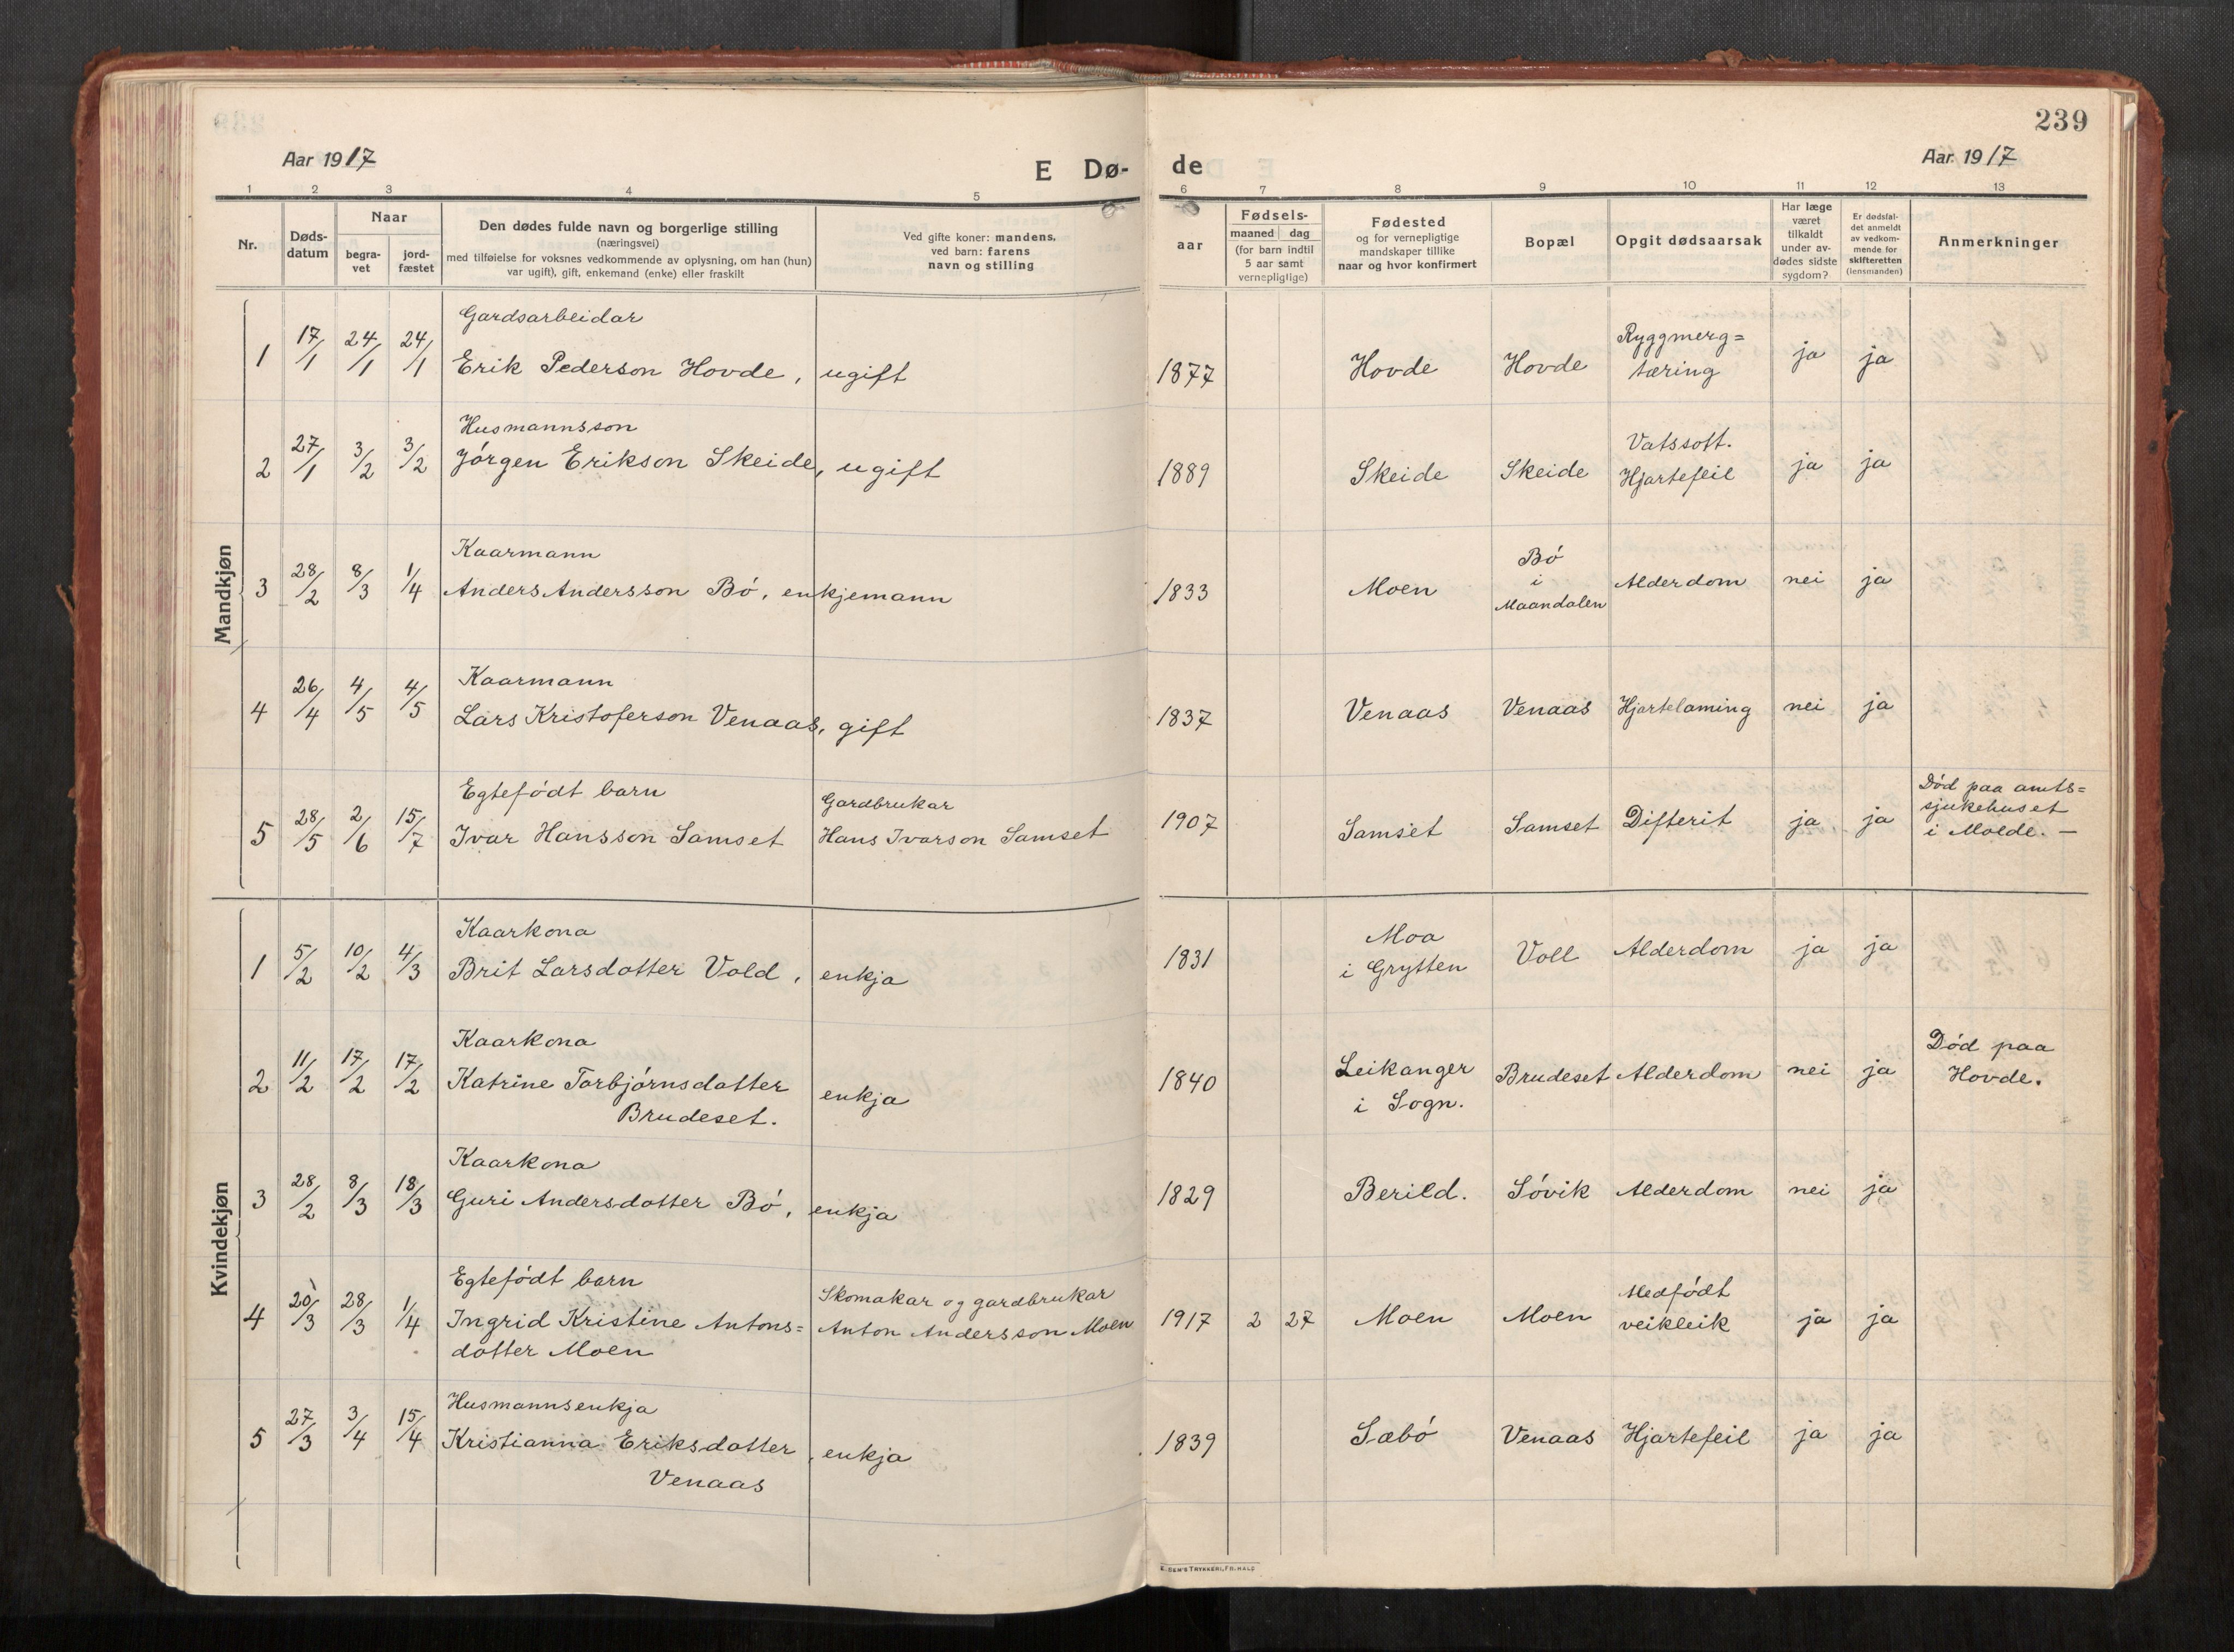 239
Aar 1917
E Dø-
de
Aar 1917
1 2 3 4 5 6 7 8 9 10 11 12 13
Nr.
Døds-
datum
Naar
begra-
vet
jord-
fæstet
Den dødes fulde navn og borgerlige stilling
(næringsvei)
med tilføielse for voksnes vedkommende av oplysning, om han (hun)
var ugift), gift, enkemand (enke) eller fraskilt
Ved gifte koner: mandens,
ved barn: farens
navn og stilling
aar
Fødsels-
maaned dag
(for barn indtil
5 aar samt
vernepligtige)
Fødested
og for vernepligtige
mandskaper tillike
naar og hvor konfirmert
Bopæl
Opgit dødsaarsak
Har læge
været
tilkaldt
under av-
dødes sidste
sygdom?
Er dødsfal-
det anmeldt
av vedkom-
mende for
skifteretten
(lensmanden)
Anmerkninger
Mandkjøn
Gardsarbeidar
1 17/1 24/1 24/1 Erik Pederson Hovde, ugift 1877 Hovde Hovde Ryggmerg=
tæring ja ja
Husmannsson
2 27/1 3/2 3/2 Jörgen Erikson Skeide, ugift 1889 Skeide Skeide Vatssott.
Hjartefeil ja ja
Kaarmann
3 28/2 8/3 1/4 Anders Andersson Bó, enkjemann 1833 Moen Bó
i
Maandalen Alderdom nei ja
Kaarmann
4 26/4 4/5 4/5 Lars Kristoferson Venaas, gift 1837 Venaas Venaas Hjartelaming nei ja
Egtefódt barn
5 28/5 2/6 15/7 Ivar Hansson Samset
Gardbrukar
Hans Ivarson Samset 1907 Samset Samset Difterit ja ja
Dód paa amts=
sjukehuset
i Molde. —
Kvindekjøn
Kaarkona
1 5/2 10/2 4/3 Brit Larsdotter Vold, enkja 1831 Moa
i Grytten Voll Alderdom ja ja
Kaarkona
2 11/2 17/2 17/2 Katrine Torbjórnsdotter
Brudeset. enkja 1840 Leikanger
i Sogn. Brudeset Alderdom nei ja
Dód paa
Hovde.
Kaarkona
3 28/2 8/3 18/3 Guri Andersdotter Bó, enkja 1829 Berild. Sóvik Alderdom nei ja
Egtefódt barn
4 20/3 28/3 1/4 Ingrid Kristine Antons=
dotter Moen
Skomakar og gardbrukar
Anton Andersson Moen 1917 2 27 Moen Moen Medfódt
veikleik ja ja
Husmannsenkja
5 27/3 3/4 15/4 Kristianna Eriksdotter
Venaas , enkja 1839 Sæbó Venaas Hjartefeil ja ja
E. SEM'S TRYKKERI, FR.HALD